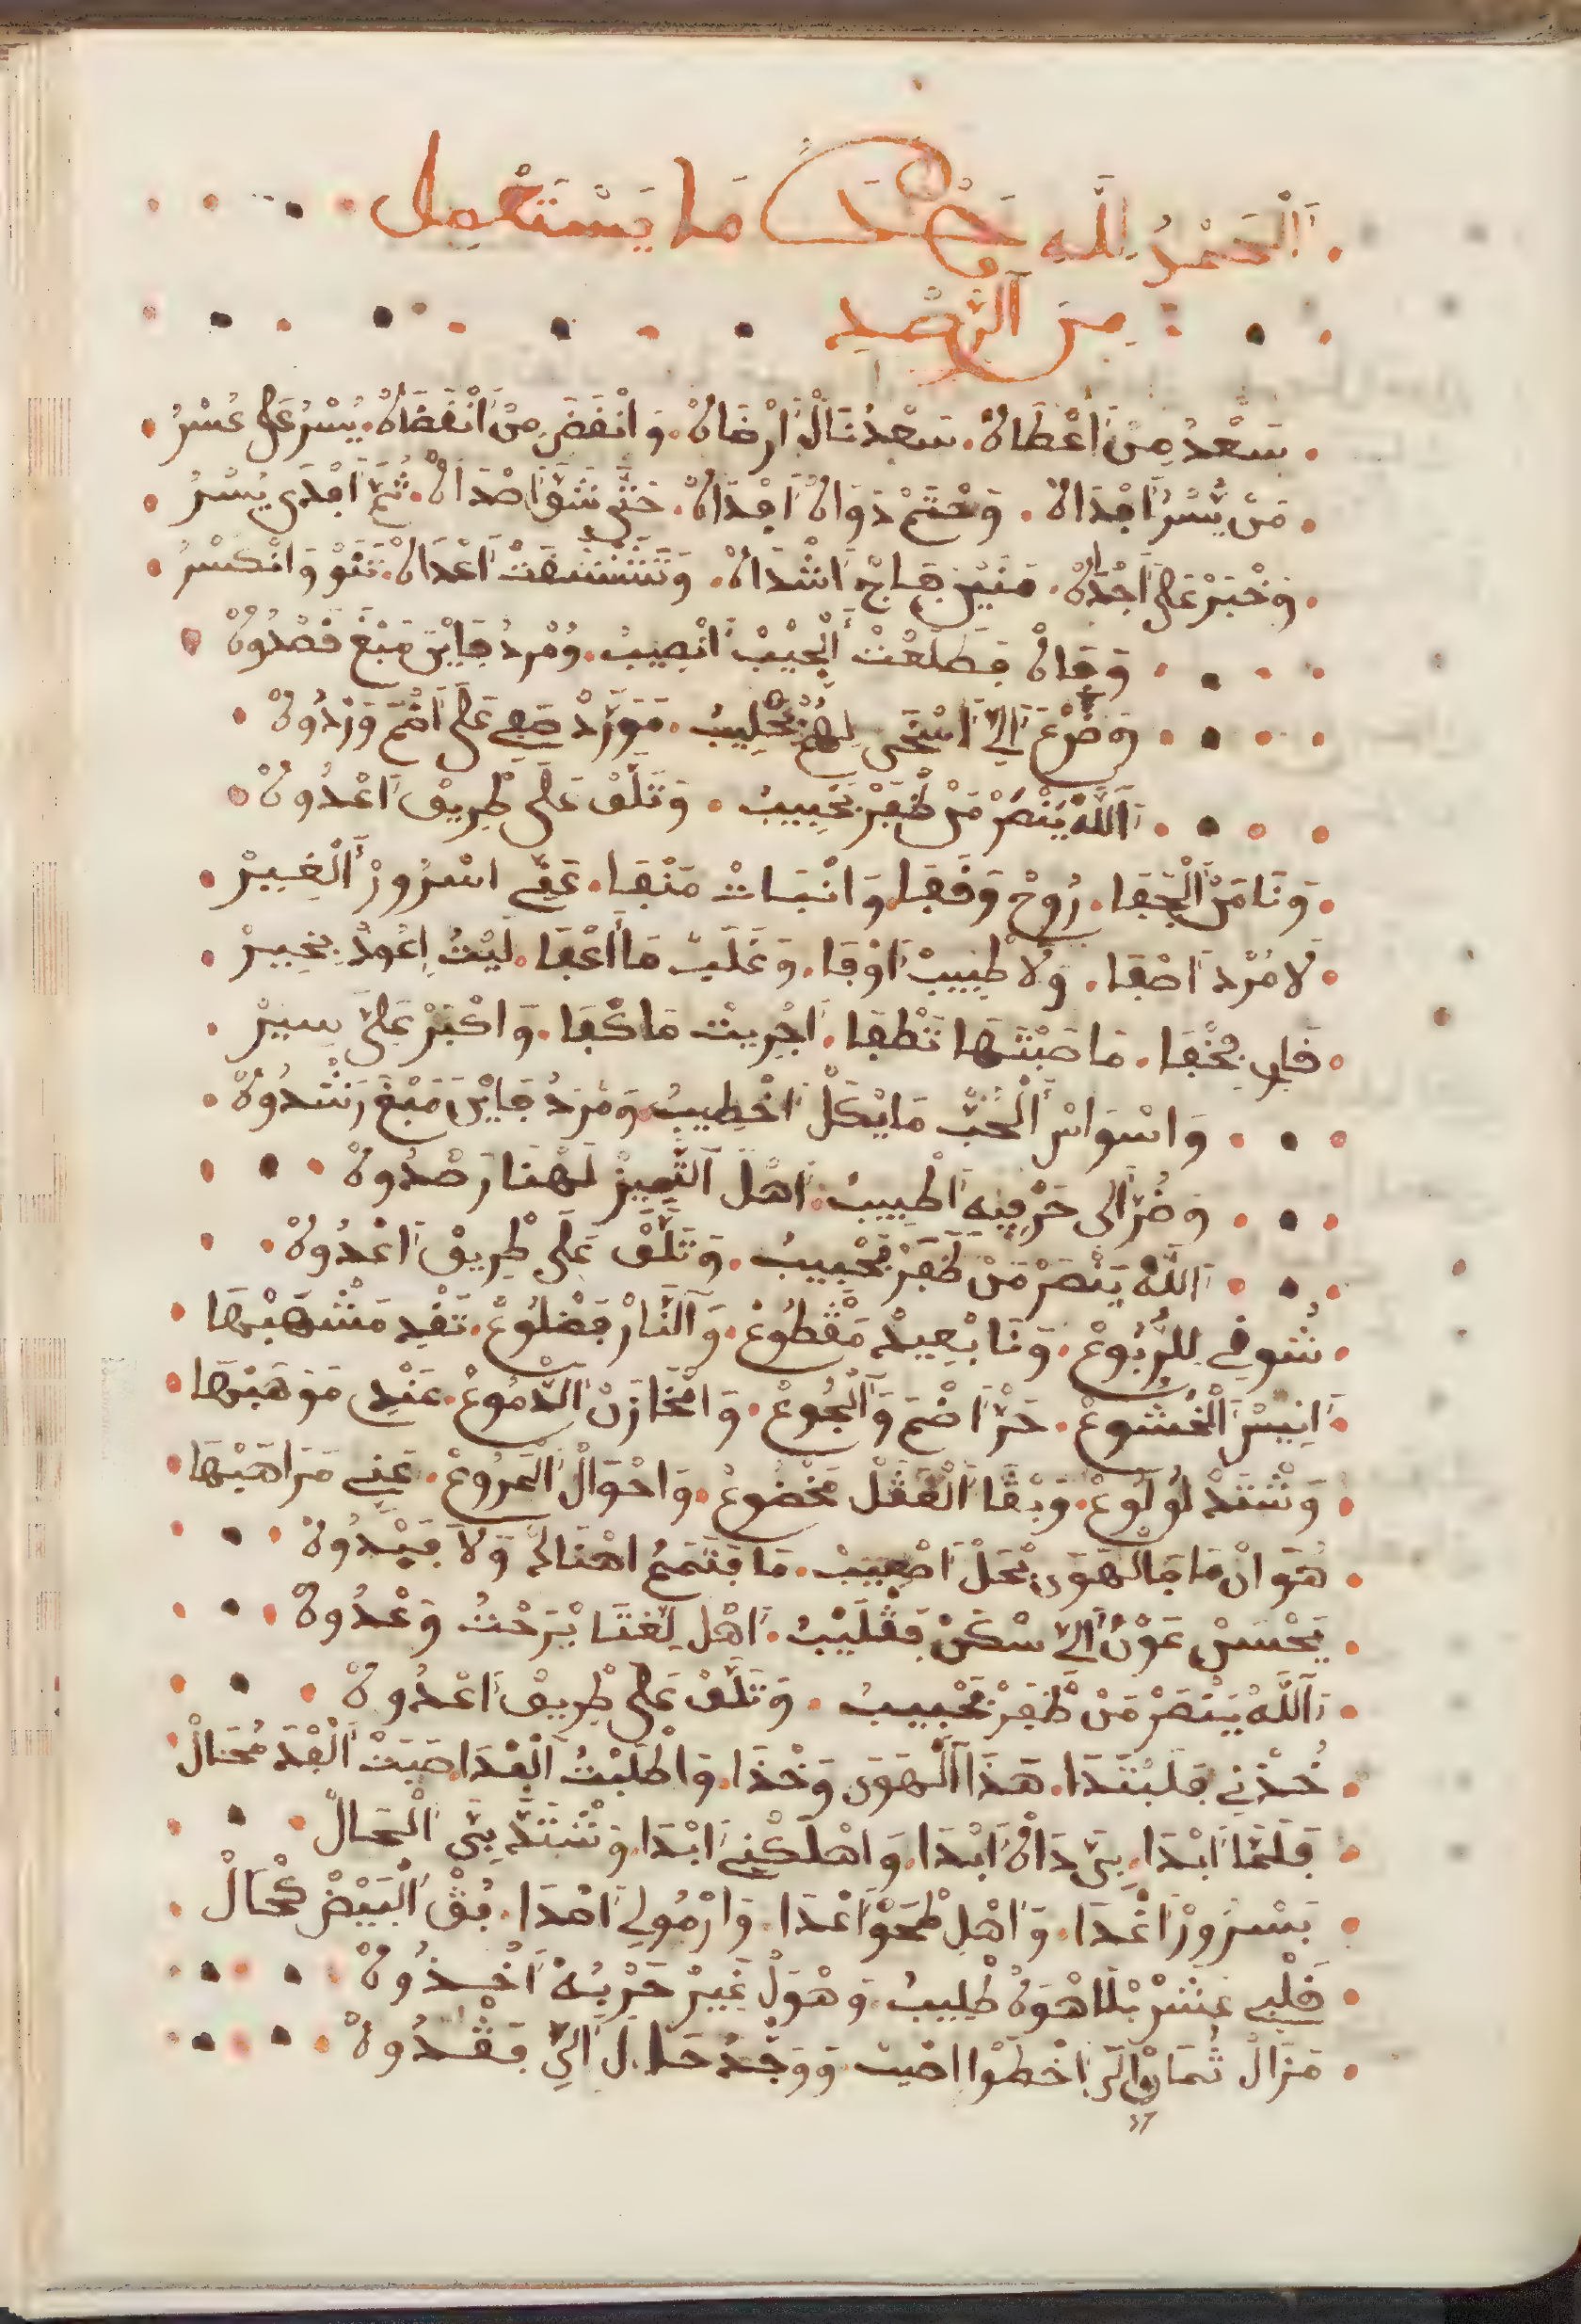 اَلْحَمْدُ لِلَّهِ وَحْدَهُ مَا يَسْتَعْمِل
مِنَ الرَّصْدِ
سَعْدُ مِنْ اَعْطَاهْ . سَعْدُ نَالْ اَرْضَاهْ . وَانْقَضَ مِنْ اَنْقَضَاهْ . يُسْرُ عَلَى عُسْرُ
مَنْ يُّسْرُ اَجْدَاهْ . وَخْتَمْ دَوَاهْ اَجْدَاهْ . حَتَّى شَقَّ اَصْدَاهْ . ثُمَّ اَجْدَى يُسْرُ
وَخْبَرْ عَلَى اَجْدَاهْ . مَنَيْن هَاجْ اَشْدَاهْ . وَتْشَتّْفَتْ اَعْدَاهْ . تَتْوْ وَانْكَسْرُ
وَفَاهْ فِطَلْعْتْ اَلْحِيْبْ اَنْصِيبُ . وُمْرْدُ فَايْن مَبْغَ قَصْدُوهْ
وَضْرْعَ اَلِي اَسْخَى لِهُمْ بَحْلِيبُ . مَوَرَّدْ صَفِي عَلَى اَضْمَ وَرْدُوهْ
اَللَّهْ يَنْصَرْ مَنْ ظْفَرْ بَحْبِيبُ . وَتْلَفْ عَلَى طْرِيقْ اَعْدُوهْ
وَنَا مَنْ اَلْجَفَا . رُوحْ وَقْفَا وَانْبَاتْ مَنْفَا . عَنِّي اسْرُورْ اَلْغِيرْ
لَا مُرْد اَصْفَا . وَلَا طْبِيبْ اَوْفَا . وَغْلَبْ مَا اَعْفَا . لَيْتُ اِعُودْ بِخِيرْ
قَلِبِ بْخْفَا . مَا صَبْتَهَا تَطْفَا . اَجْرِيتْ مَا كْفَا . وَاكْبَرْ عَلَيَّ سِيرْ
وَاسْوَاسْ اَلْحُبّْ مَا يْكَلْ اَخْطِيبُ وَمْرَدُ فَايْن مَبْغَ رَشْدُوهْ
وَضُرّ اَلِي حَرْفِيهْ اَطْبِيبُ . اَهْلَ اَلتّْمِيزْ لَهْنَا رَصْدُوهْ
اَللَّهْ يَنْصَرْ مَنْ ظْفَرْ بَحْبِيبُ . وَتْلَفْ عَلَى طْرِيقْ اَعْدُوهْ
شُوقِي لِلرّْبُوعْ . وَنَا بْعِيدْ مَقْطُوعْ . وَالنَّارْ فَضْلُوعْ . تَقْدِ مَشْهَبْهَا
اَنِيسْ اَلْخُشُوعْ . حَرّْ اَضْمَ وَالْجُوعْ . وَامْخَازَنْ اَلدّْمُوعْ . عَنْدِ مَوْهَبْهَا
وَشْتَدْ لُو لُوعْ . وَبْقَا اَلْعْقَلْ مَخْضُوعْ . وَاحْوَالْ اَلْمْرُوعْ . عَنِّي مَرَاهَبْهَا
هُوَ انْ مَا فَالْهَوَى بْحَلْ اَصْعِيبْ . مَا فَتْمَعْ اهْنَالُ وَلَا فَيْدُوهْ
يَحْسَنْ عَوْنْ اَلِي سْكَنْ فَقْلَيْبُ . اَهْل لَغْنَا يْرَحْتُ وَعْدُوهْ
اَللَّهْ يَنْصَرْ مَنْ ظْفَرْ بَحْبِيبُ . وَتْلَفْ عَلَى طْرِيقْ اَعْدُوهْ
خُدْنِي فَلَبْتَدَا . هَذَا اَلْهَوَى وَخْذَا . وَاطْلَبْتُ اَلْفْدَا صَبْتْ اَلْفْدَ مْحَالْ
فَلَمَّا اَبْدَا . بِيَّ دَاهْ اَبْدَا . وَاهْلَكْنِي اَبْدَا . وَشْتَدّْ بِيَّ اَلْحَالْ
بَسْرُورْ اَغْدَا . وَاَهْلِ طْمَحْوْ اَعْدَا . وَارْمُولِي اَهْدَا . بُقْ اَلْبَيْضْ كْحَالْ
قَلْبِي عِشَرْ بْلَا هْوَهْ طْلِيبُ . وَهْوَلْ غَيِرْ حَرْبُهْ اَخْذُوهْ
مَزَالْ ثْمَارْ اَلَى اَخْطَوْا اصْيَبْ وَوَجْدُ حَلَالْ اَلِّي فَقْدُوهْ